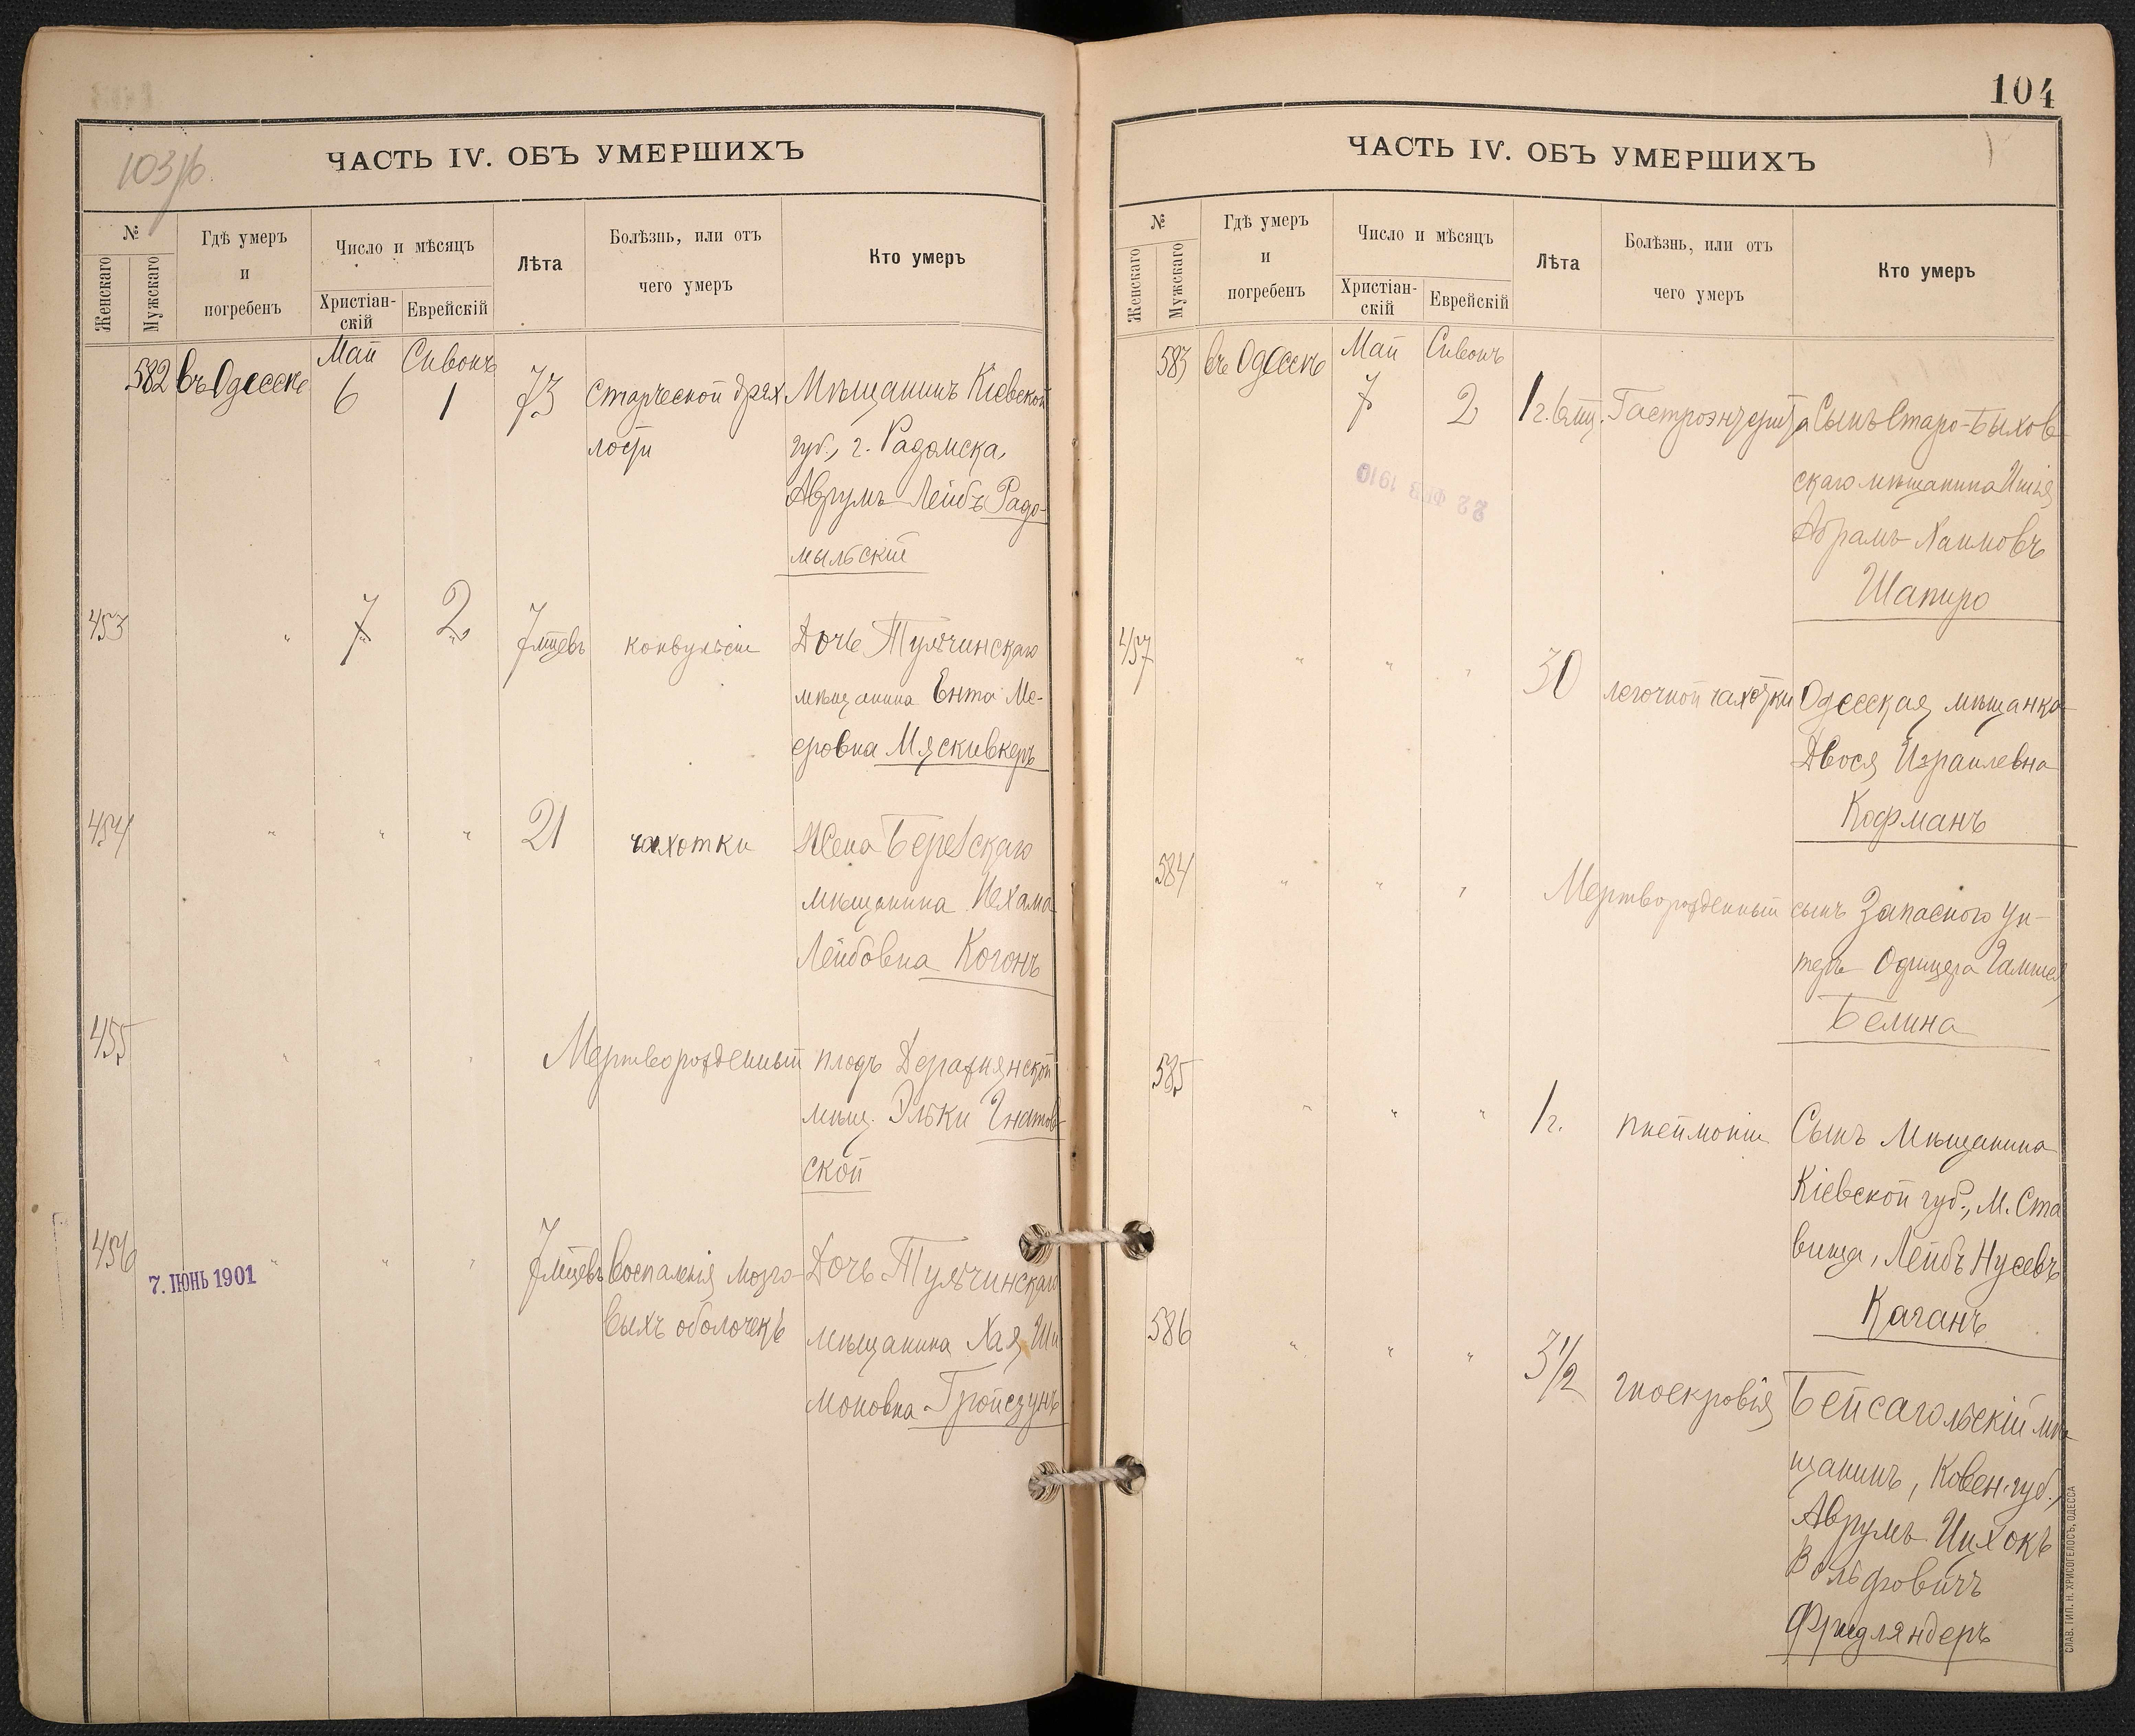 103/б.
ЧАСТЬ IV. ОБЪ УМЕРШИХЪ
№
Женскаго
Мужскаго
Гдѣ умеръ
и
погребенъ
Число и мѣсяцъ
Христіан-
скій
Еврейскій
Лѣта
Болѣзнь, или отъ
чего умеръ
Кто умеръ
Май Сивонъ
582 въ Одессѣ 6 1 73 Старческой дрях Мѣщанинъ Кіевской
лости губ., г. Радомска,
Аврумъ-Лейбъ Радо-
мыльскій
453 " 7 2 7 мцевъ конвульсіи Дочь Тульчинскаго
мѣщанина Ента Ме-
еровна Мясковкеръ
454 " " " 21 чахотки Жена
мѣщанина Нехама
Лейбовна Когонъ
455 " " " Мертворожденный плодъ Деражнянской
мѣщ. Эльки Гнатов-
ской
456 " " " 7 мцевъ Воспаленія мозго- Дочь Тульчинскаго
7. ІЮНЬ 1901
выхъ оболочекъ мѣщанина Хая Ши
моновна Тройсзунъ
104
ЧАСТЬ IV. ОБЪ УМЕРШИХЪ
№
Женскаго
Мужскаго
Гдѣ умеръ
и
погребенъ
Число и мѣсяцъ
Христіан-
скій
Еврейскій
Лѣта
Болѣзнь, или отъ
чего умеръ
Кто умеръ
583 въ Одессѣ Май Сивонъ
7 2 1 г. 6 мц. Гастроэнтерита Сынъ Старо-Быхов-
скаго мѣщанина
22 ФЕВ 1910
Абрамъ Хаимовъ
Шапиро
457 " " " 30 легочной чахотки Одесская мѣщанка
Двося Израилевна
Кофманъ
584 " " " Мертворожденный сынъ Запасного Ун-
теръ Офицера Гамшея
Белина
585 " " " 1 г. пнеймоніи Сынъ Мѣщанина
Кіевской губ., М. Ста
вища, Лейбъ Нусевъ
Каганъ
586 " " " 3 1/2 гноекровія Бейсагольскій мѣ-
щанинъ, Ковен. губ.,
Аврумъ-Ицхокъ
Вольфовичъ
Фридляндеръ
СЛАВ. ТИП. Н. ХРИСОГЕЛОСЪ, ОДЕССА